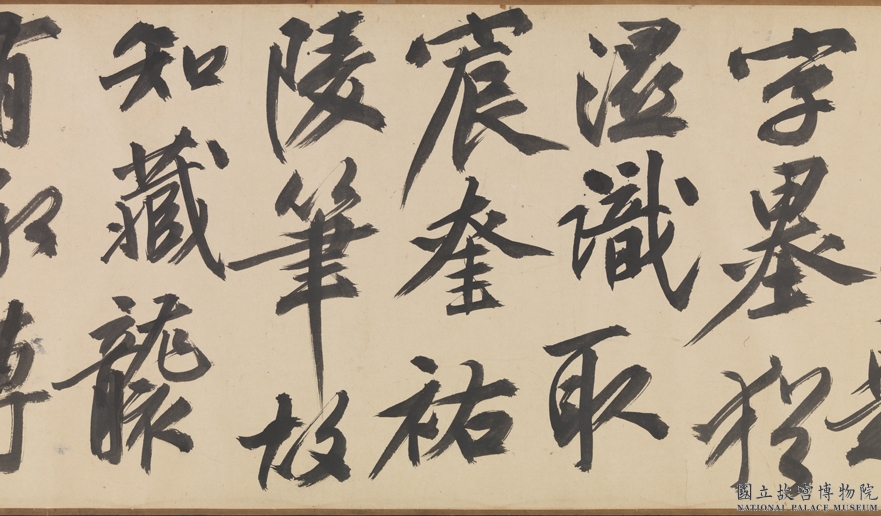 字墨猶
濕識取
宸奎祐
陵筆故
知藏襲
有
國立故宮博物院
NATIONAL PALACE MUSEUM